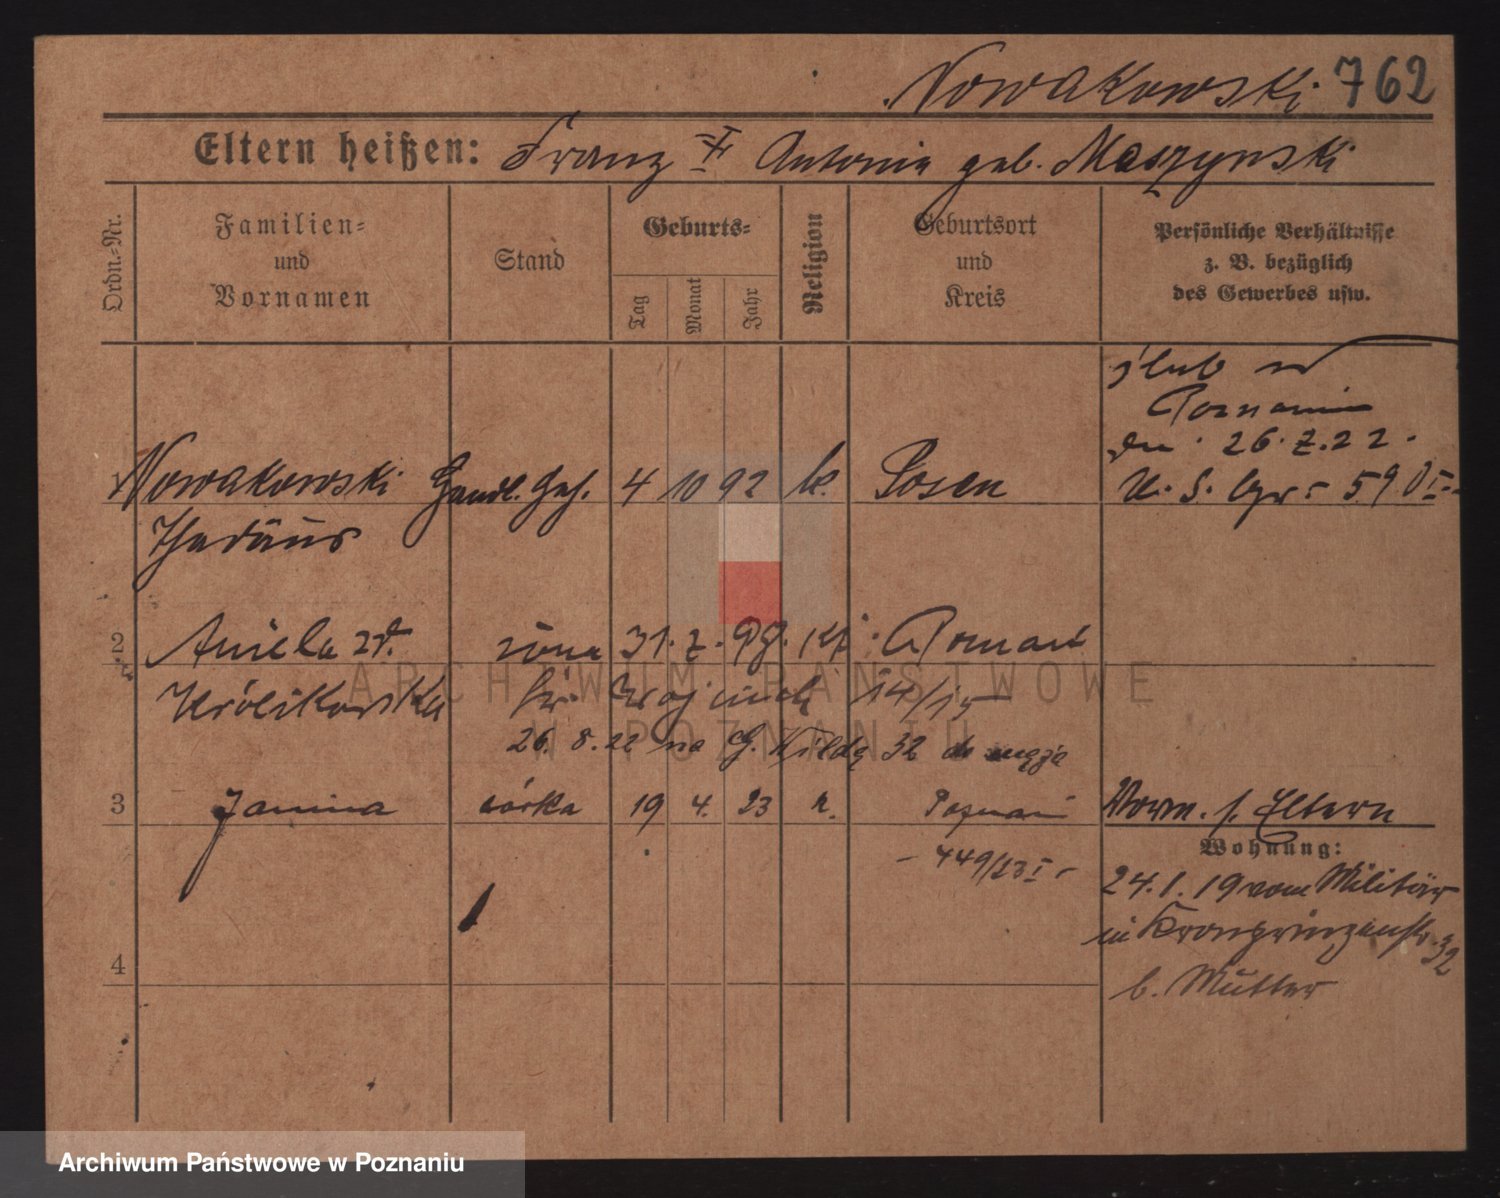 Nowakowski 762
Eltern heißen: Franz Antonie geb. Maszynski
Ordn.-Nr.
Familien-
und
Vornamen
Stand
Geburts-
Tag
Monat
Jahr
Religion
Geburtsort
und
Kreis
Persönliche Verhältnisse
z. B. bezüglich
des Gewerbes usw.
ślub w
Poznaniu
26. 7. 22.
1 Nowakowski Handl. Geh. 4 10 92 k. Posen
Thadäus
2 Aniela zd. żona 31. 7. 98. kt. Poznań
Królikowska 14/15
26. 8. 22 na G. Wildę 32 do męża
3 Janina córka 19 4. 23 k. Poznań
Vorm. s. Eltern
Wohnung:
- 449/23 I -
24. 1. 19 vom Militär
in Kronprinzenstr. 32
b. Mutter
4
ARCHIWUM PAŃSTWOWE
W POZNANIU
Archiwum Państwowe w Poznaniu